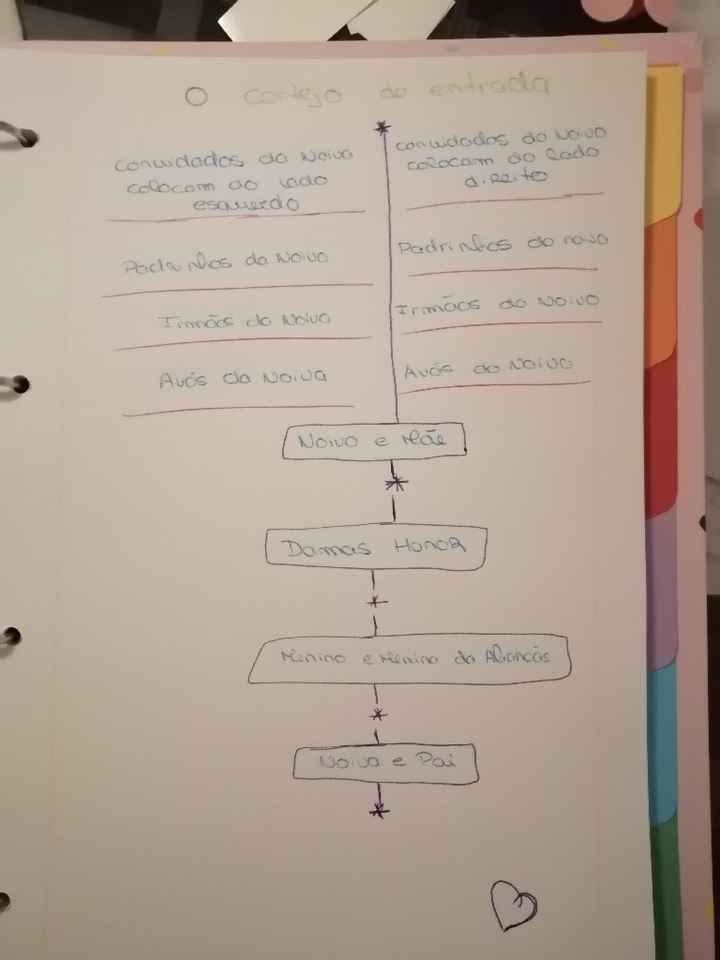 O cortejo de entrada
Convidados da Noiva
colocam ao lado
esquerdo
Convidados do Noivo
colocam do lado
direito
Padrinhos da Noiva
Padrinhos do noivo
Irmãos da Noiva
Irmãos do Noivo
Avós da Noiva
Avós do Noivo
Noivo e Mãe
Damas Honor
Menino e Menina da Alianças
Noiva e Pai